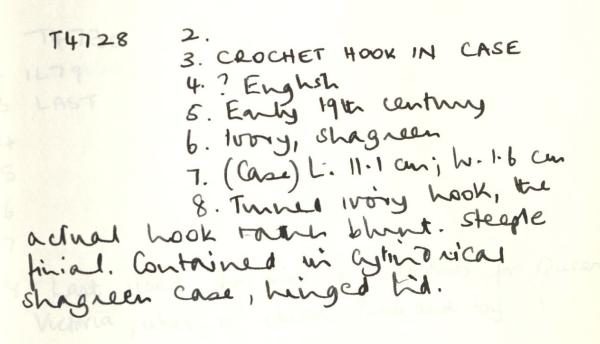 T4728 2.
3. CROCHET HOOK IN CASE
4. ? English
5. Early 19th century
6. Ivory, shagreen
7. (Case) L. 11.1 cm; W. 1.6 cm
8. Turned ivory hook, the
actual hook rather blunt. Steeple
finial. Contained in cylindrical
shagreen case, hinged lid.